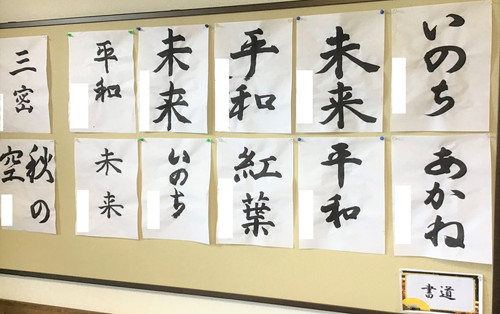 いのち
未来
平和
未来
平和
三密
あかね
平和
紅葉
いのち
未来
秋の
空
書道